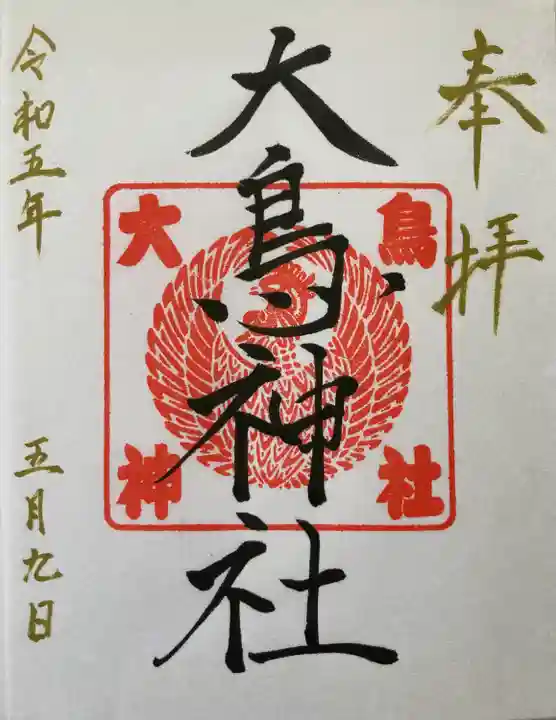 奉拝
大鳥神社
大鳥
神社
令和五年
五月九日